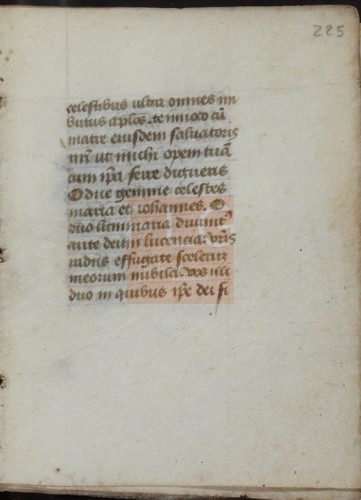 225
celestibus ultra omnes im
butus aplos. te inuoco cū
matre eiusdem saluatoris
nrī ut michi opem tuā
cum ipā ferre digneris
O due gemme celestes
maria et iohannes. O
duo luminaria diuinit9
ante deum lucencia: vrīs
radiis effugate scelerum
meorum nubila. vos illi
duo in quibus ipē dei fi